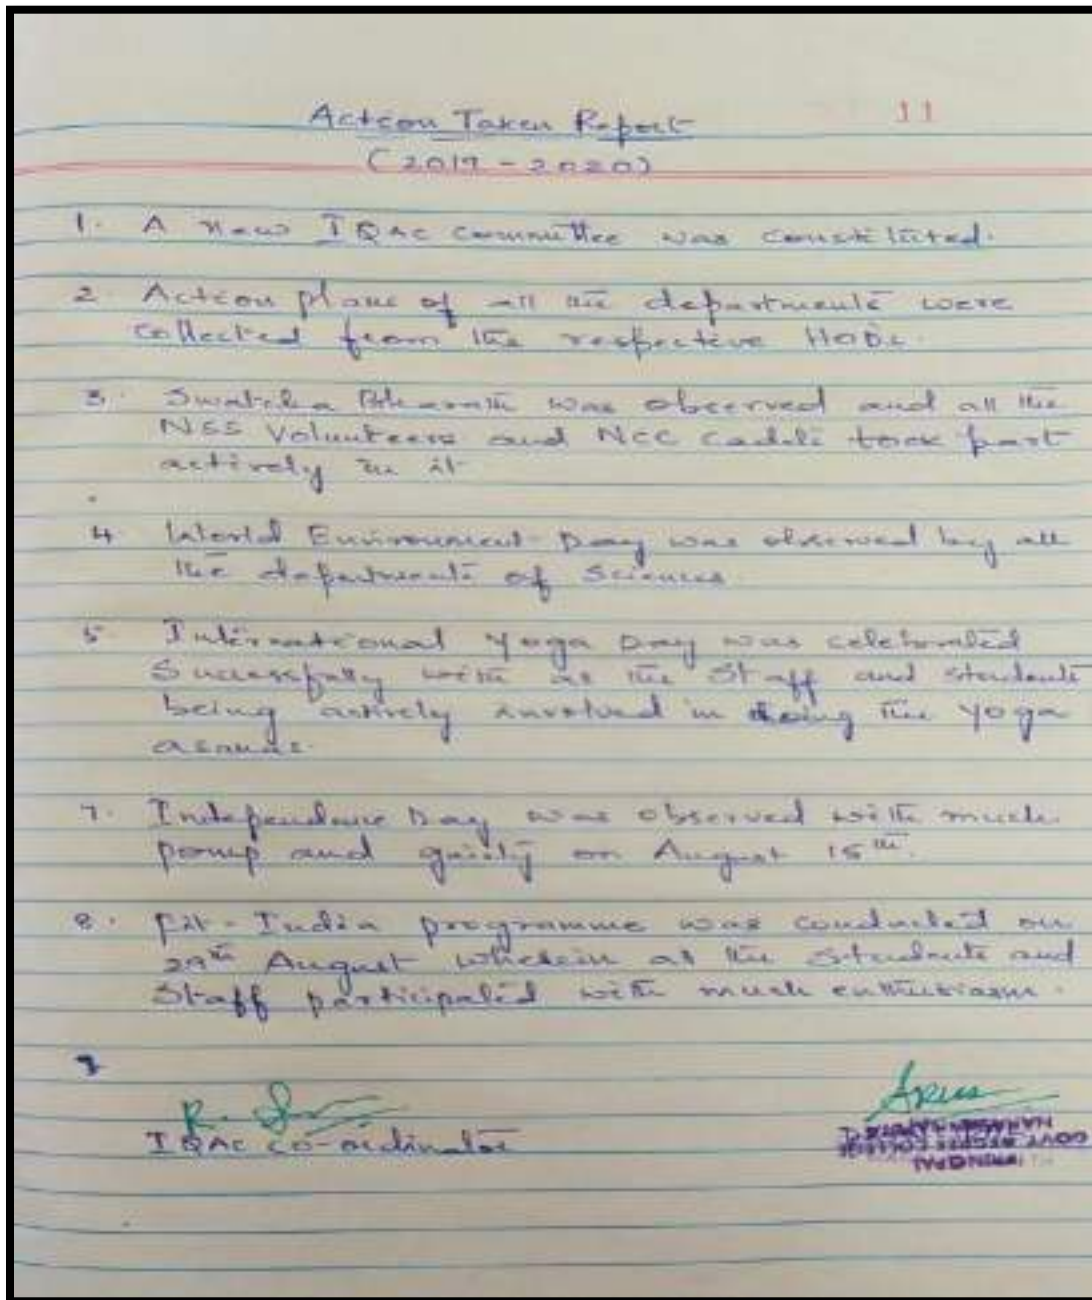 11
Action Taken Report
(2019-2020)
1. A new IQAC committee was constituted.
2. Action plans of all the departments were
collected from the respective HODs.
3. Swatcha Bharath was observed and all the
NSS Volunteers and NCC Cadets took part
actively in it.
4. World Environment Day was observed by all
the departments of Sciences.
5. International Yoga Day was celebrated
Successfully with all the Staff and students
being actively involved in doing the Yoga
asanas.
7. Independence Day was observed with much
pomp and gaiety on August 15th.
8. Fit-India programme was conducted on
29th August wherein all the Students and
Staff participated with much enthusiasm.
R.
IQAC co-ordinator
PRINCIPAL
GOVT DEGREE COLLEGE